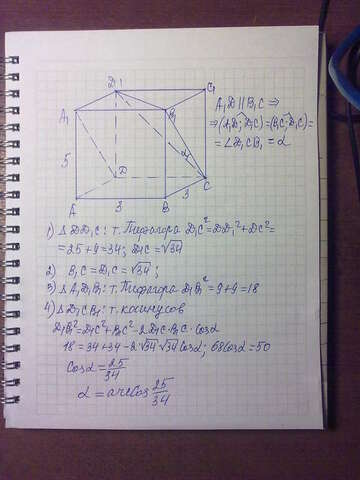 D₁
C₁
A₁
B₁
α
5
D
C
A
3
B
3
A₁D ∥ B₁C ⇒
⇒ (A₁D; D₁C) = (B₁C; D₁C) =
= ∠D₁CB₁ = α
1) Δ DD₁C: т. Пифагора D₁C² = DD₁² + DC² =
= 25 + 9 = 34; D₁C = √34
2) B₁C = D₁C = √34;
3) Δ A₁D₁B₁: т. Пифагора D₁B₁² = 9 + 9 = 18
4) Δ D₁CB₁: т. косинусов
D₁B₁² = D₁C² + B₁C² - 2·D₁C·B₁C·cosα
18 = 34 + 34 - 2·√34·√34 cosα; 68cosα = 50
cosα = 25/34
α = arccos 25/34